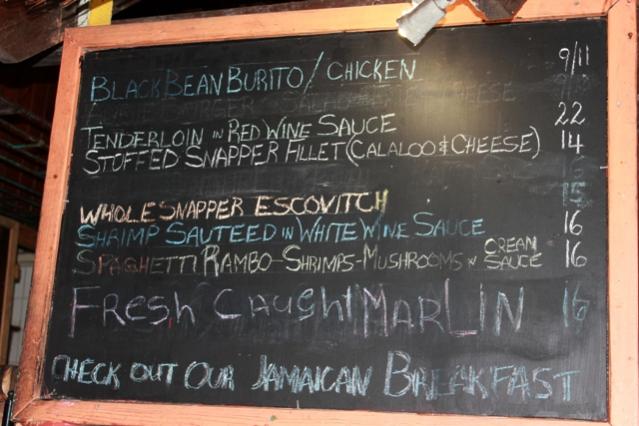 BLACK BEAN BURITO/CHICKEN 9/11
TENDERLOIN IN RED WINE SAUCE 22
STOFFED SNAPPER FILLET (CALALOO & CHEESE) 14
15
WHOLE SNAPPER ESCOVITCH
SHRIMP SAUTEED IN WHITE WINE SAUCE 16
SPAGHETTI RAMBO-SHRIMPS-MUSHROOMS CREAN SAUCE 16
FRESH CAUGHT MARLIN 16
CHECK OUT OUR JAMAICAN BREAKFAST